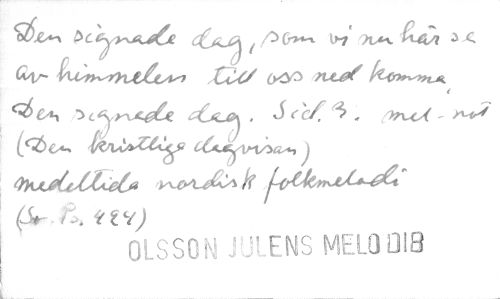 Den signade dag, som vi nu här se
av himmelen till oss ned komma
Den signade dag. Sid. 3. mel-not
(Den kristliga dagvisan)
medeltida nordisk folkmelodi
(Sv. Ps. 424)
OLSSON JULENS MELODIB